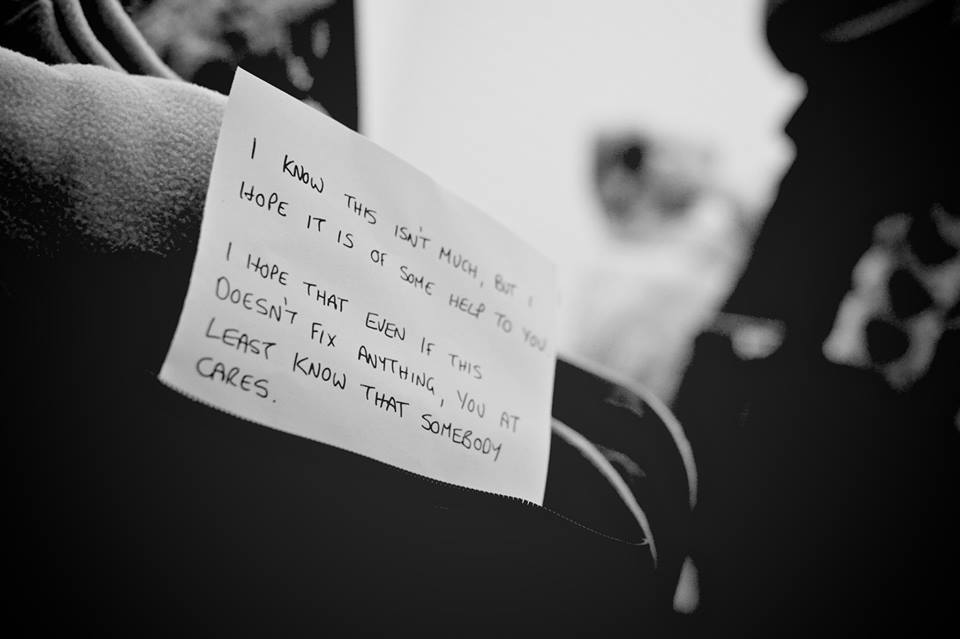 I KNOW THIS ISN'T MUCH, BUT I
HOPE IT IS OF SOME HELP TO YOU
I HOPE THAT EVEN IF THIS
DOESN'T FIX ANYTHING, YOU AT
LEAST KNOW THAT SOMEBODY
CARES.